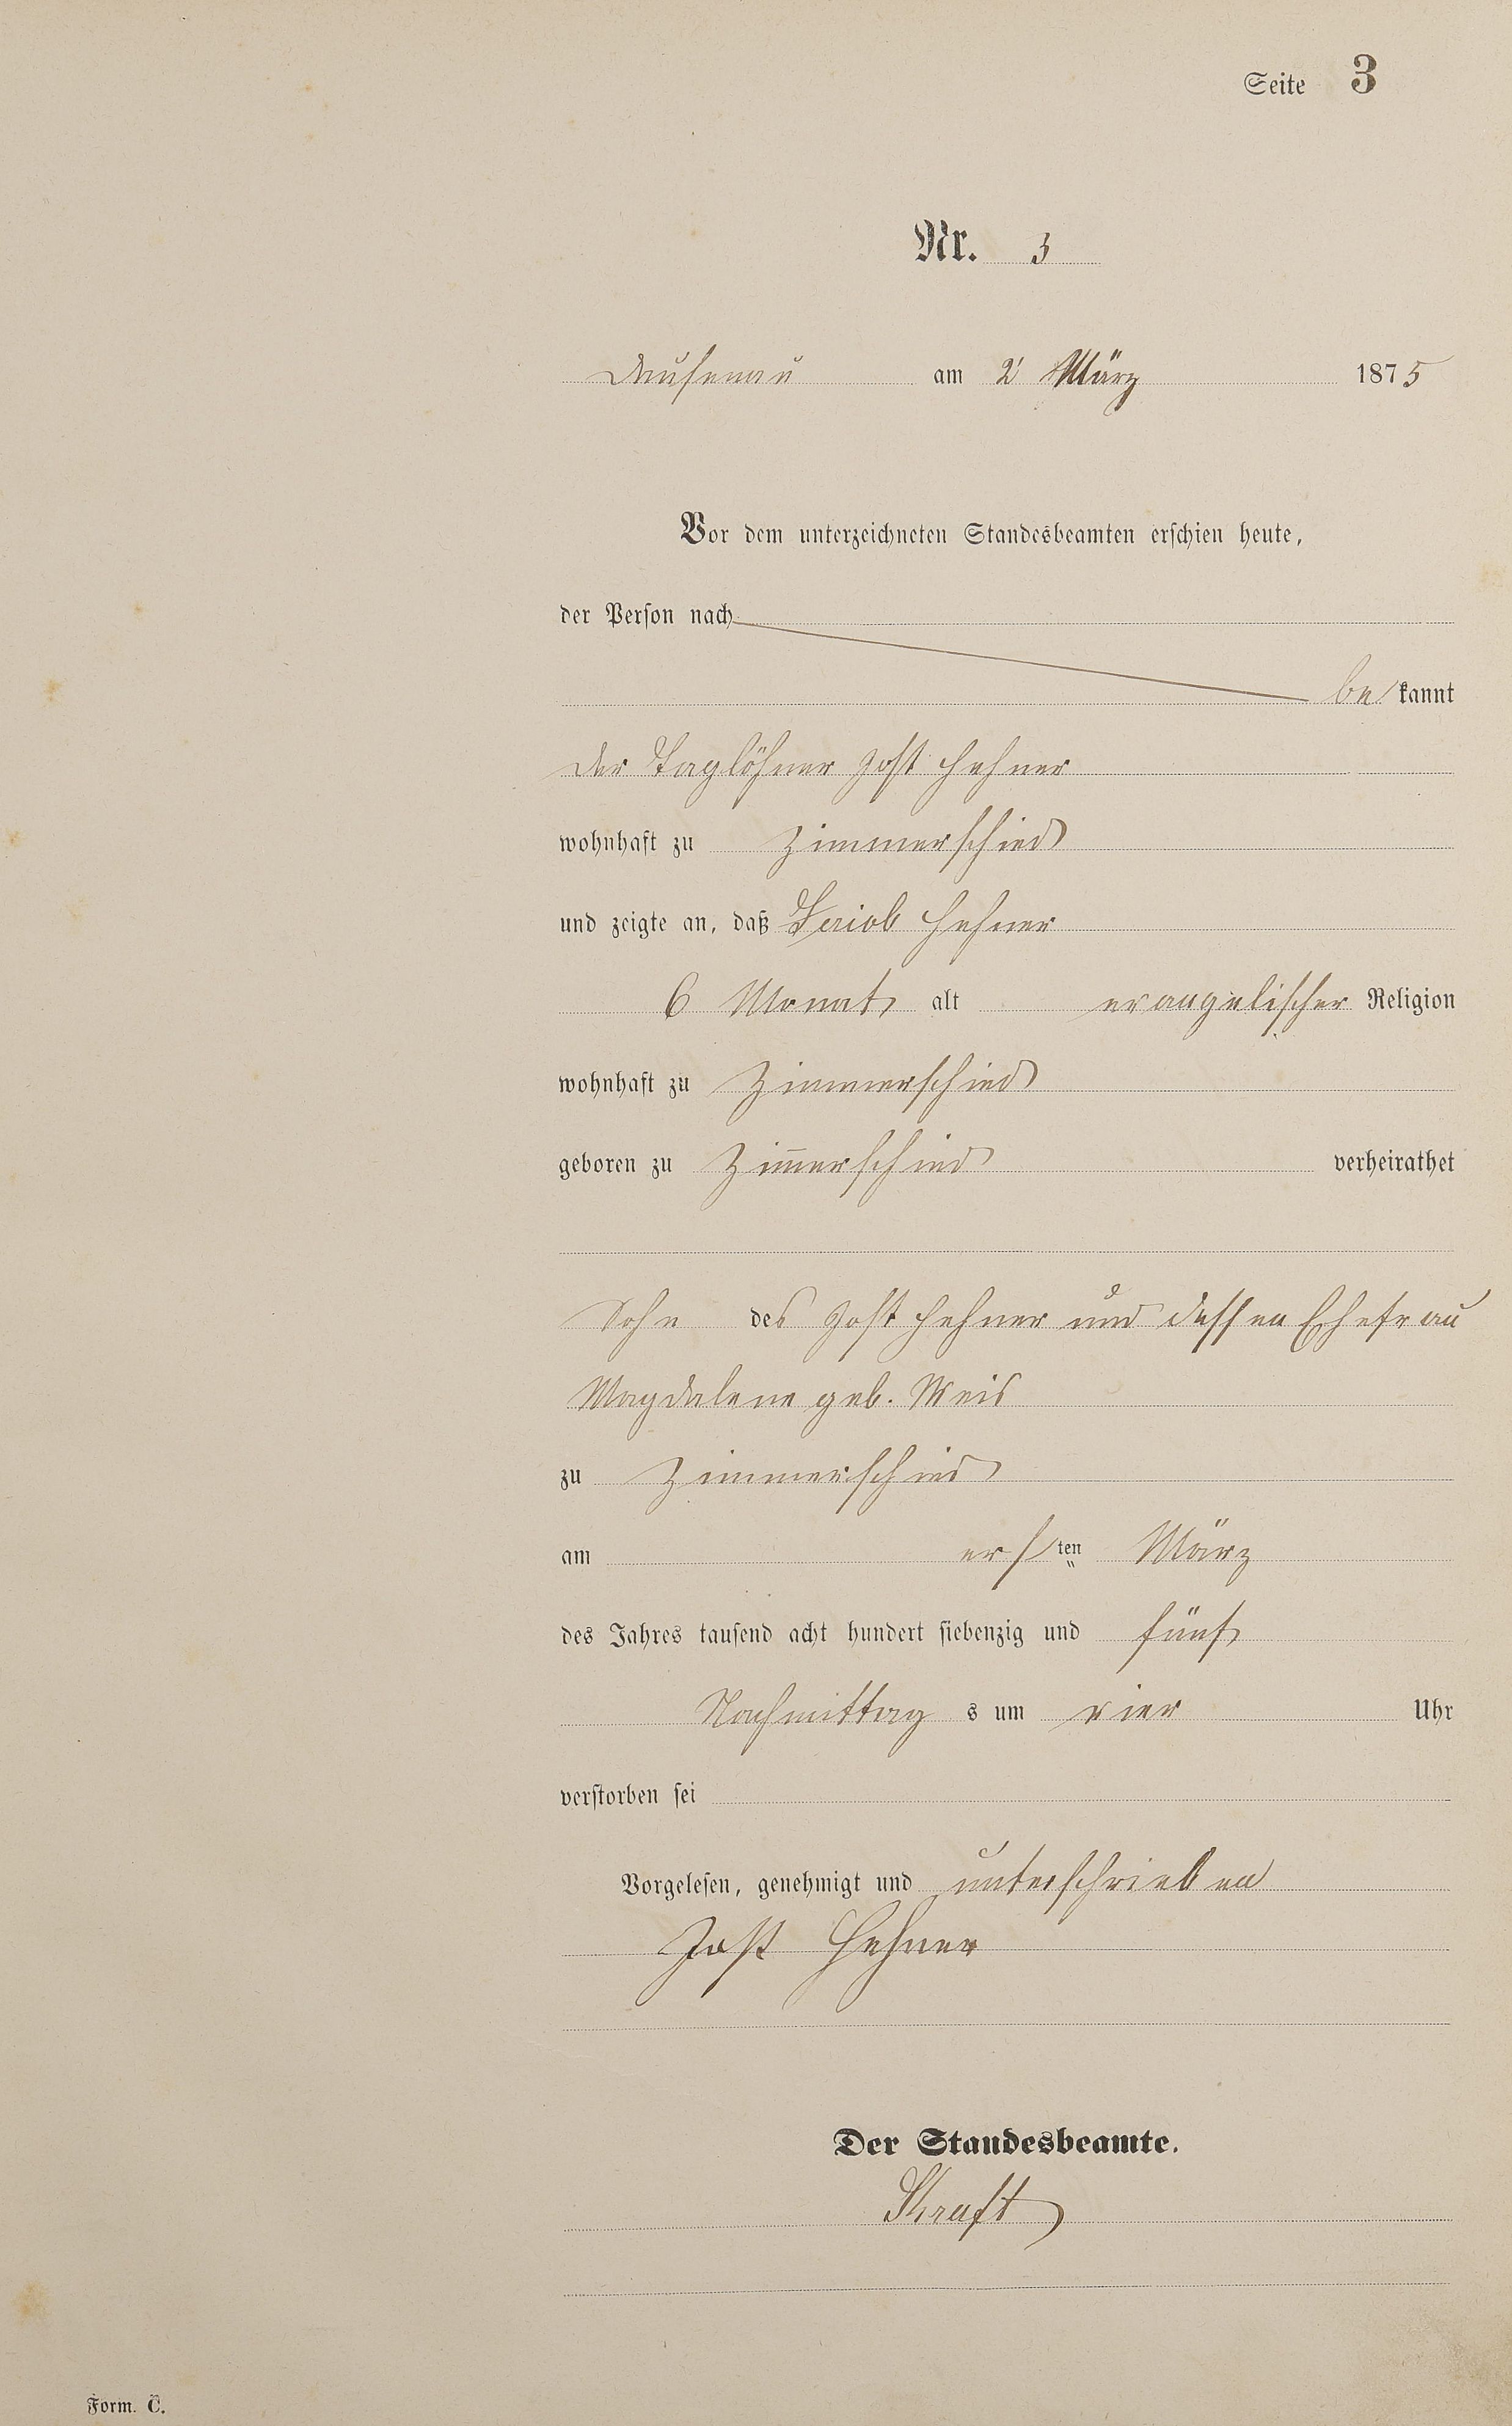 Seite 3
Nr. 3
Dausenau am 2 März 1875
Vor dem unterzeichneten Standesbeamten erschien heute,
der Person nach
bekannt
der Taglöhner Jost Hehner
wohnhaft zu Zimmerschied
und zeigte an, daß Hehner
6 Monat alt evangelischer Religion
wohnhaft zu Zimmerschied
geboren zu Zim̅erschied verheirathet
Sohn des Jost Hehner und dessen Ehefrau
Magdalene geb. Weis
zu Zimmerschied
am ersten März
des Jahres tausend acht hundert siebenzig und fünf
Nachmittags um vier Uhr
verstorben sei
Vorgelesen, genehmigt und unterschrieben
Jost Hehner
Der Standesbeamte.
Kraft
Form. C.